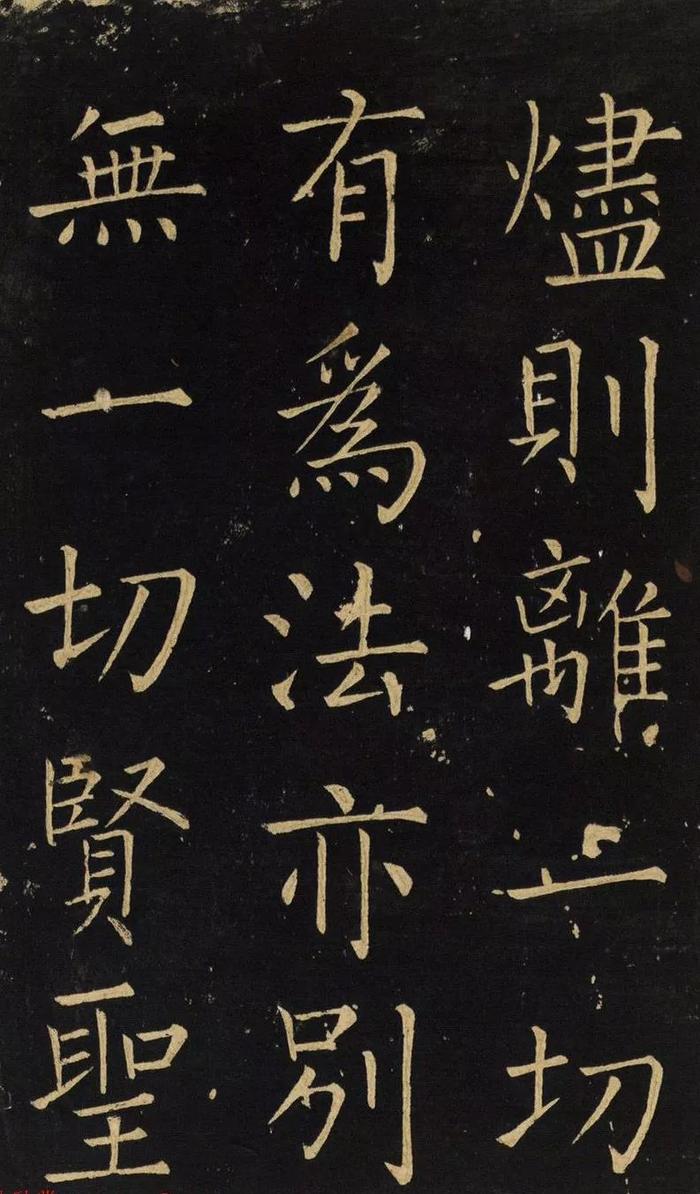 燼則離一切
有爲法亦別
無一切賢聖